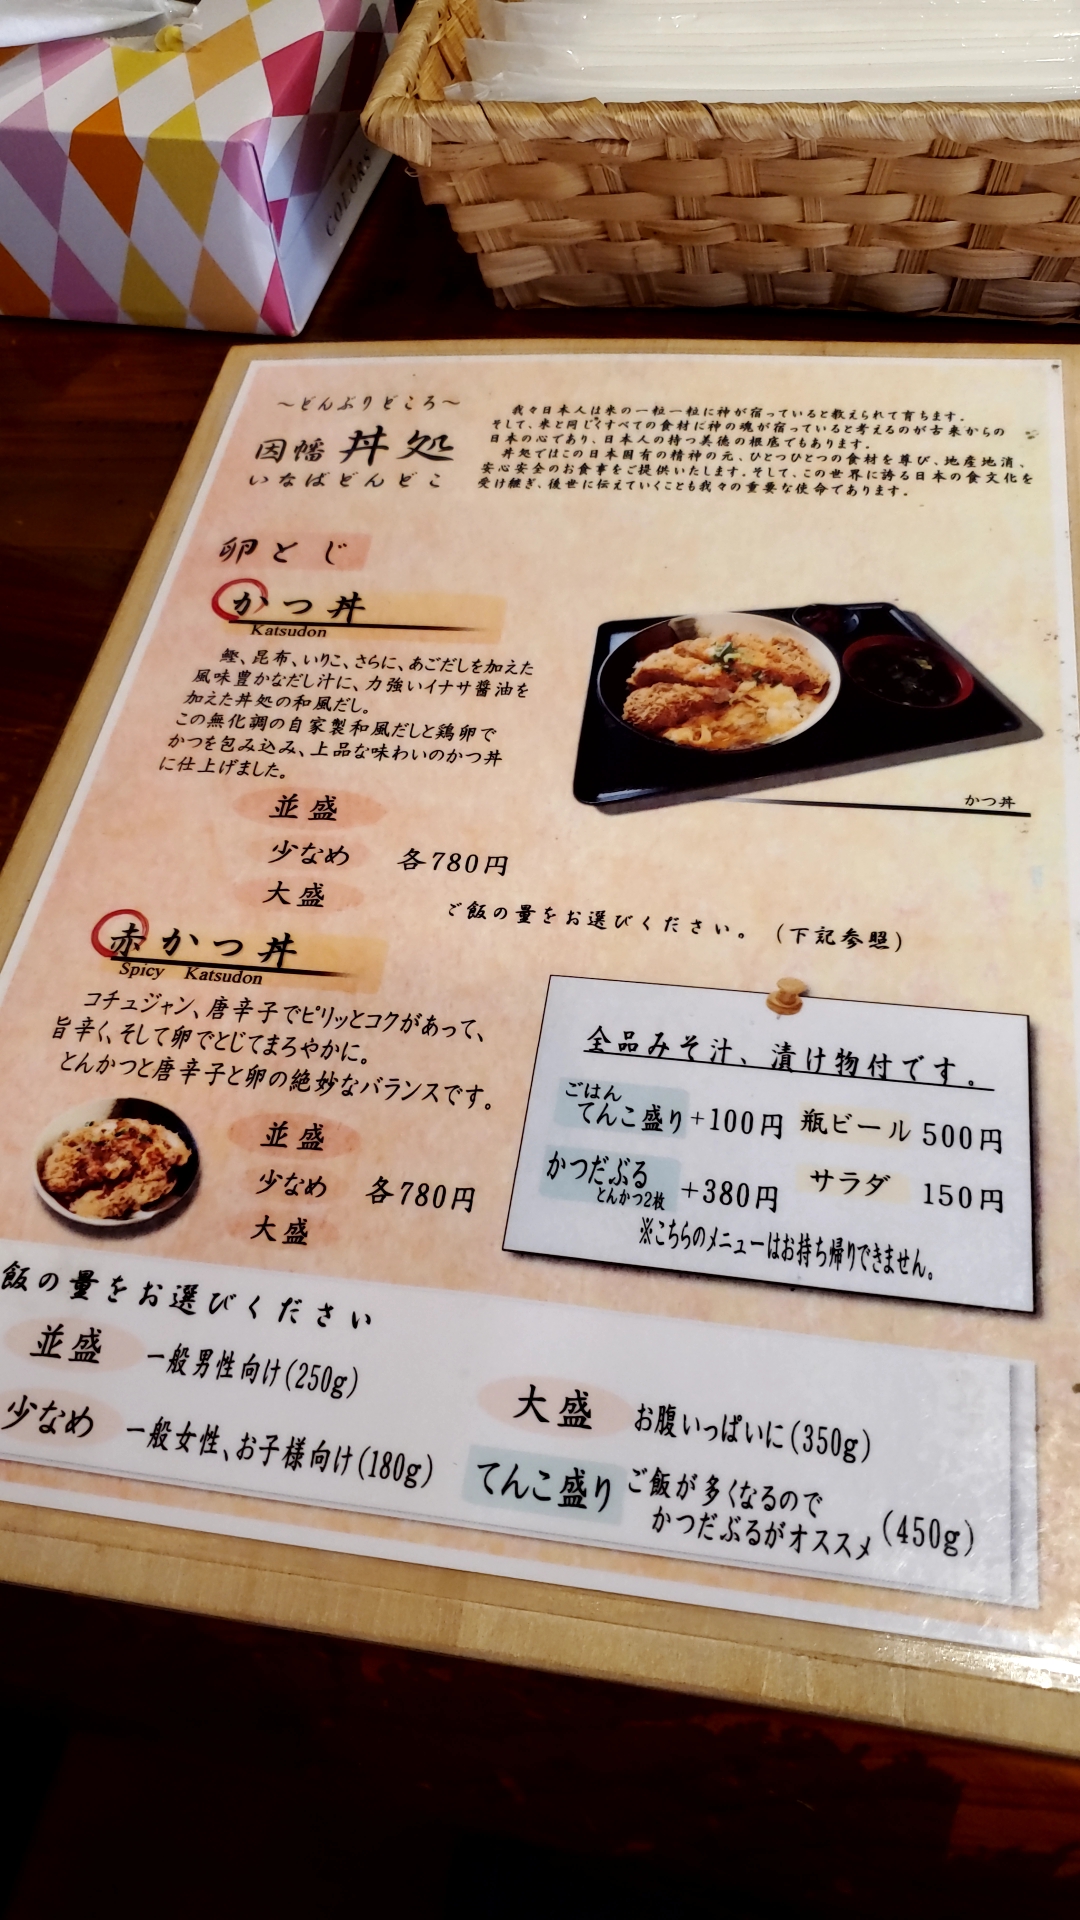 COLORS
～どんぶりどころ～
因幡 丼処
いなばどんどこ
我々日本人は米の一粒一粒に神が宿っていると教えられて育ちます。
そして、米と同じくすべての食材に神の魂が宿っていると考えるのが古来からの
日本の心であり、日本人の持つ美徳の根底でもあります。
丼処ではこの日本固有の精神の元、ひとつひとつの食材を尊び、地産地消、
安心安全のお食事をご提供いたします。そして、この世界に誇る日本の食文化を
受け継ぎ、後世に伝えていくことも我々の重要な使命であります。
卵とじ
かつ丼
Katsudon
鰹、昆布、いりこ、さらに、あごだしを加えた
風味豊かなだし汁に、力強いイナサ醤油を
加えた丼処の和風だし。
この無化調の自家製和風だしと鶏卵で
かつを包み込み、上品な味わいのかつ丼
に仕上げました。
かつ丼
並盛
少なめ 各780円
大盛
ご飯の量をお選びください。（下記参照）
赤かつ丼
Spicy Katsudon
コチュジャン、唐辛子でピリッとコクがあって、
旨辛く、そして卵でとじてまろやかに。
とんかつと唐辛子と卵の絶妙なバランスです。
並盛
少なめ 各780円
大盛
全品みそ汁、漬け物付です。
ごはん
てんこ盛り +100円 瓶ビール 500円
かつだぶる
とんかつ2枚 +380円 サラダ 150円
※こちらのメニューはお持ち帰りできません。
飯の量をお選びください
並盛 一般男性向け(250g)
少なめ 一般女性、お子様向け(180g)
大盛 お腹いっぱいに(350g)
てんこ盛り ご飯が多くなるので
かつだぶるがオススメ (450g)